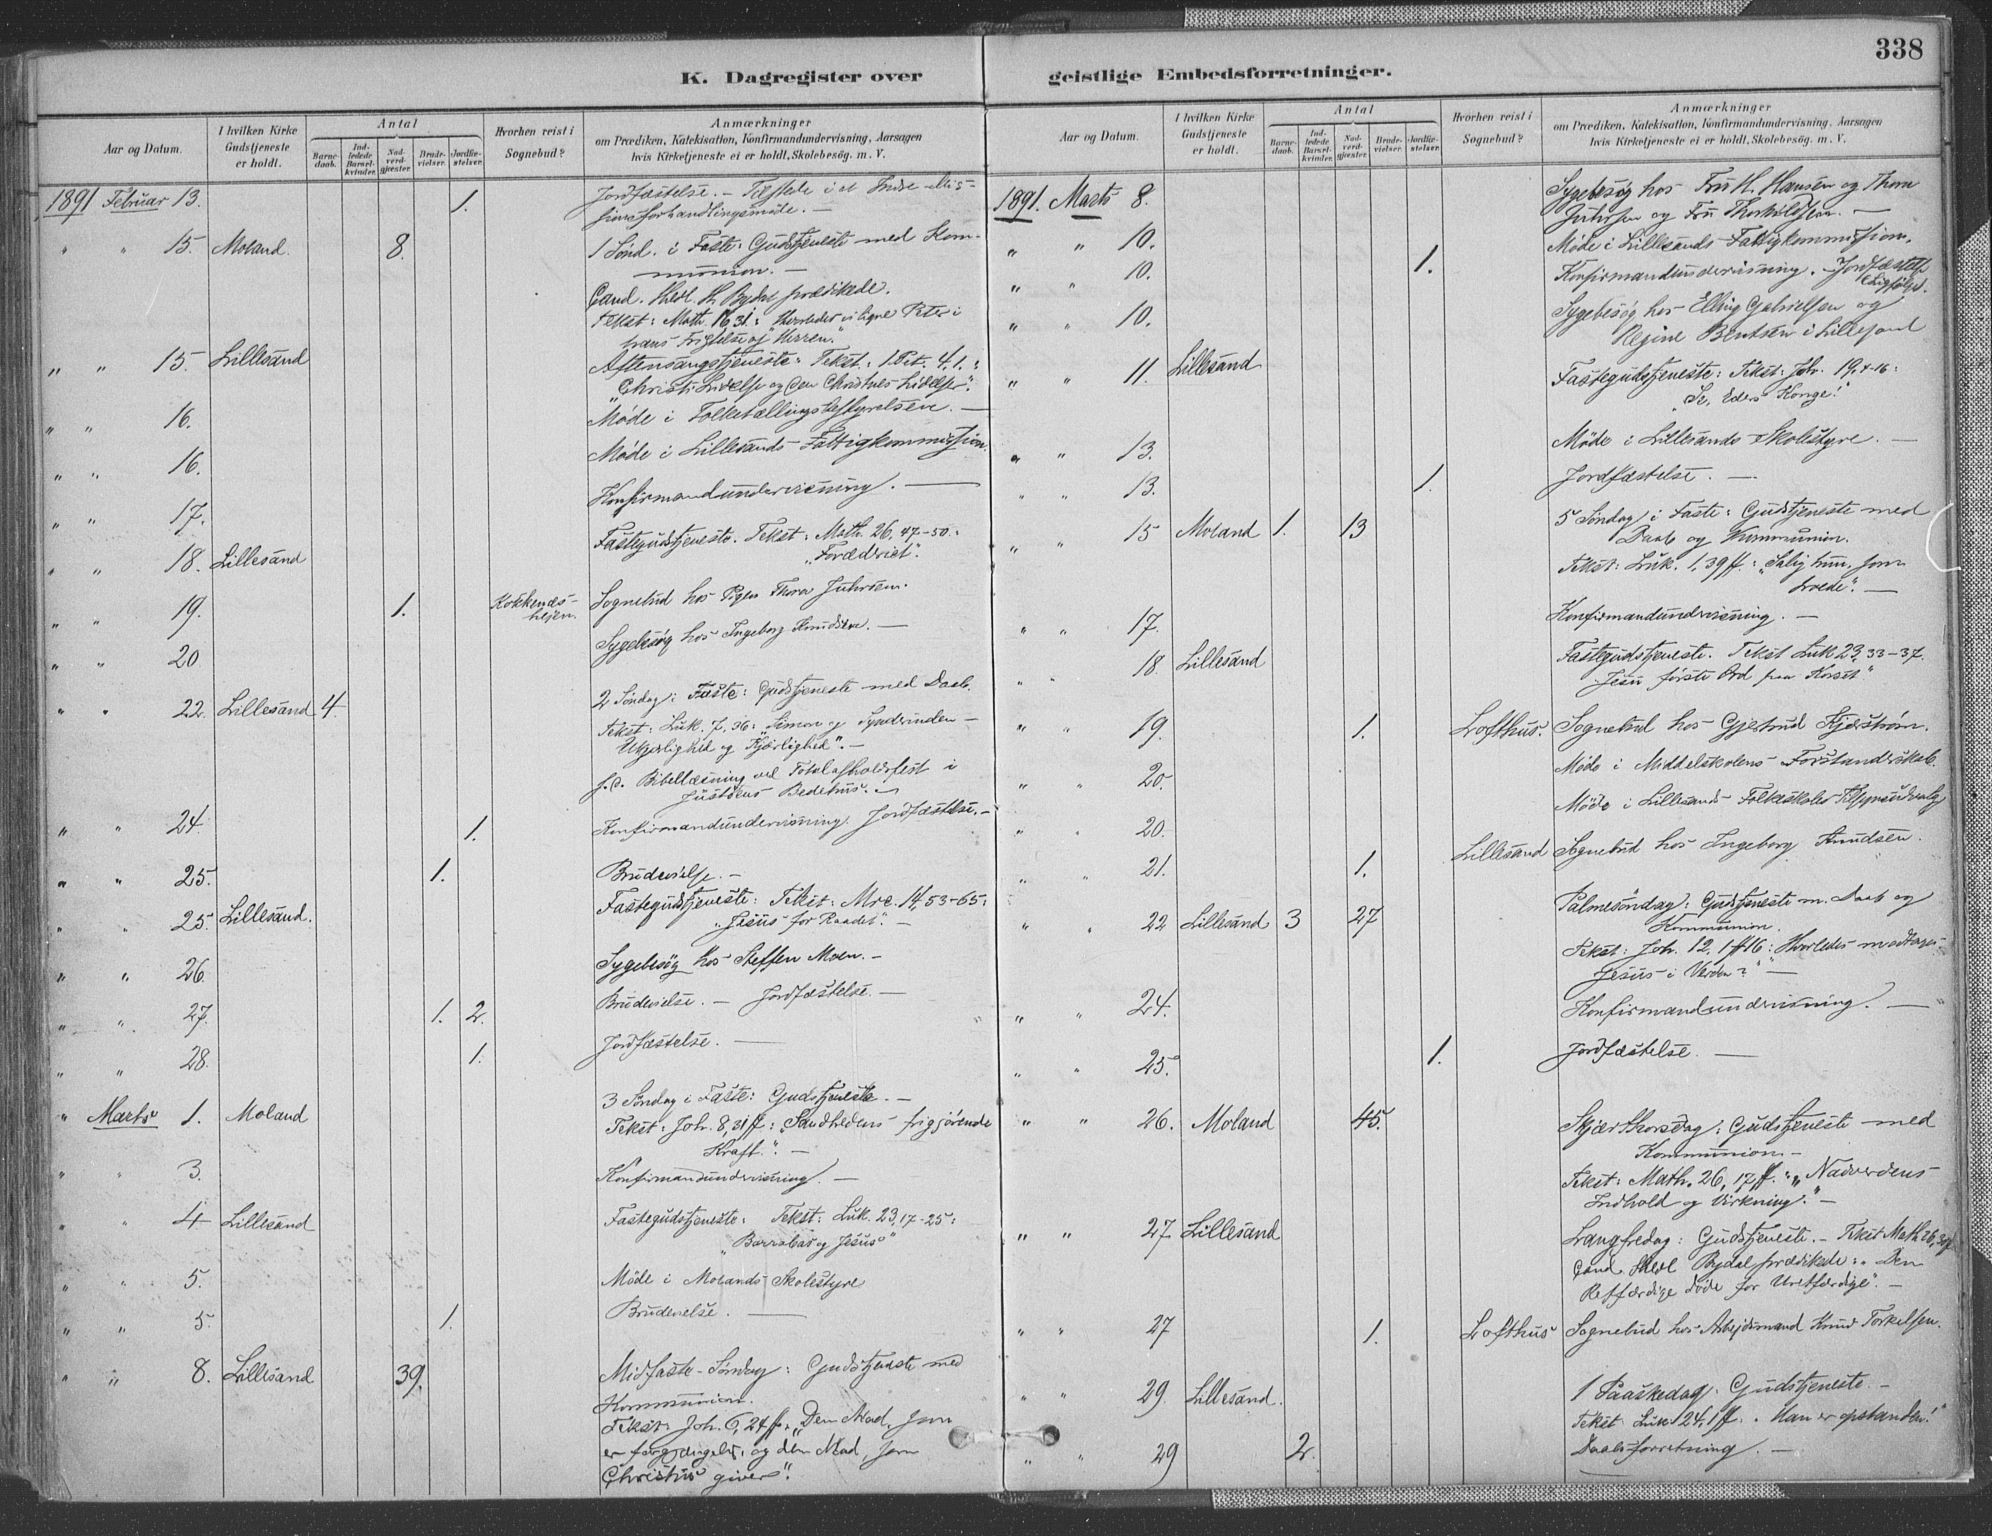 K. Dagregister over
Aar og Datum.
I hvilken Kirke Gudstjeneste er holdt.
Antal
Barnedaab.
Indledede Barselkvinder.
Nadverdgjester.
Brudevielser.
Jordfæstelser.
Hvorhen reist i Sognebud?
Anmærkninger
om Prædiken, Katekisation, Konfirmandundervisning, Aarsagen
hvis Kirketjeneste ei er holdt, Skolebesøg. m. V.
1891 Februar 13. 1. Jordfæstelse. – Tilstede i et Indre Mis-
sionsforhandlingsmøde. –
" " 15. Moland. 8. 1 Sønd. i Faste: Gudstjeneste med Kom-
munion. –
Cand. theol. H. Bydal prædikede.
Tekst: Math. 16 31.: Hvorledes vi ligne Peter i
hans Frygtelse af Herren."
" " 15. Lillesand Aftensangstjeneste: Tekst: 1 Pet. 4,1.:
"Christi Lidelse og den Christnes Lidelse".
" " 16. Møde i Folketællingsbestyrelsen. –
" " 16. Møde i Lillesands Fattigkommission.
" " 17. Konfirmandundervisning. –
" " 18. Lillesand Fastegudstjeneste. Tekst: Math. 26, 47-50.:
"Forræderiet".
" " 19. 1. Kokkenes-
heien. Sognebud hos Pigen Thora Juhrsen.
" " 20 Sygebesøg hos Ingeborg Knudsen. –
" " 22. Lillesand 4. 2 Søndag i Faste: Gudstjeneste med Daab.
Tekst: Luk. 7, 36: "Simon og Synderinden –
Ukjærlighed og Kjærlighed". –
s. D. Bibellæsning ved Totalafholdsfest i
Justøens Bedehus. –
" " 24. 1. Konfirmandundervisning. Jordfæstelse. –
" " 25. 1. Brudevielse. –
" " 25. Lillesand. Fastegudstjeneste: Tekst: Mrc. 14, 53-65:
"Jesus for Raadet". –
" " 26. Sygebesøg hos Steffen Moen. –
" " 27. 1. 2. Brudevielse. – Jordfæstelse. –
" " 28. 1. Jordfæstelse. –
" Marts 1. Moland 3 Søndag i Faste: Gudstjeneste. –
Tekst: Joh. 8, 31 ff: "Sandhedens frigjørende
Kraft". –
" " 3. Konfirmandundervisning. –
" " 4 Lillesand Fastegudstjeneste: Tekst: Luk. 23, 17-25:
"Barrabas og Jesus"
" " 5. Møde i Molands Skolestyre
" " 5. 1. Brudevielse. –
" " 8. Lillesand 39. Midfaste-Søndag: Gudstjeneste med
Kommunion.
Tekst: Joh. 6, 27 ff. "Den Mad, som
er forgjængelig, og den Mad, som
Christus giver".
338
geistlige Embedsforretninger.
Aar og Datum.
I hvilken Kirke Gudstjeneste er holdt.
Antal
Barnedaab.
Indledede Barselkvinder.
Nadverdgjester.
Brudevielser.
Jordfæstelser.
Hvorhen reist i Sognebud?
Anmærkninger
om Prædiken, Katekisation, Konfirmandundervisning. Aarsagen
hvis Kirketjeneste ei er holdt, Skolebesøg. m. V.
1891. Marts 8. Sygebesøg hos Fru H. Hansen og Thora
Juhrsen og Fru Thorkildsen. –
" " 10. Møde i Lillesands Fattigkommission.
" " 10. 1. Konfirmandundervisning. – Jordfæstelse
Ligfølge.
" " 10. Sygebesøg hos Elling Gabrielsen og
Regine Bentsen i Lillesand
" " 11. Lillesand Fastegudstjeneste: Tekst: Joh. 19, 4-16:
"Se, Eders Konge!"
" " 13. Møde i Lillesands Skolestyre. –
" " 13. 1. Jordfæstelse. –
" " 15 Moland 1. 13 5 Søndag i Faste: Gudstjeneste med
Daab og Kommunion.
Tekst: Luk. 1, 39 ff.: "Salig hun, som
troede". –
" " 17. Konfirmandundervisning. –
" " 18. Lillesand Fastegudstjeneste. Tekst Luk 23, 33-37.
"Jesu første Ord paa Korset"
" " 19. 1. Lofthus. Sognebud hos Gjertrud Kjerstrøm.
" " 20. Møde i Middelskolens Forstanderskab.
" " 20. Møde i Lillesands Folkeskoles Tilsynsudvalg
" " 21. 1. Lillesand Sognebud hos Ingeborg Knudsen.
" " 22 Lillesand 3 27 Palmesøndag: Gudstjeneste m. Daab og
Kommunion.
Tekst: Joh. 12, 1 ff 16: Hvorledes modtages
Jesus i Verden?" –
" " 24. Konfirmandundervisning. –
" " 25. 1. Jordfæstelse. –
" " 26. Moland 45. Skjærthorsdag: Gudstjeneste med
Kommunion –
Tekst: Math. 26, 17 ff.: "Nadverdens
Indhold og Virkning". –
" " 27 Lillesand Langfredag: Gudstjeneste. – Tekst Math 26,
Cand. theol Bydal prædikede: "Den
Retfærdige døde for Uretfærdige". –
" " 27 1. Lofthus Sognebud hos Arbejdsmand Knud Torkelsen.
" " 29. Lillesand. 1 Paaskedag. Gudstjeneste. –
Tekst Luk 24, 1 ff. "Han er opstanden!"
" " 29 2. Daabsforretning. –